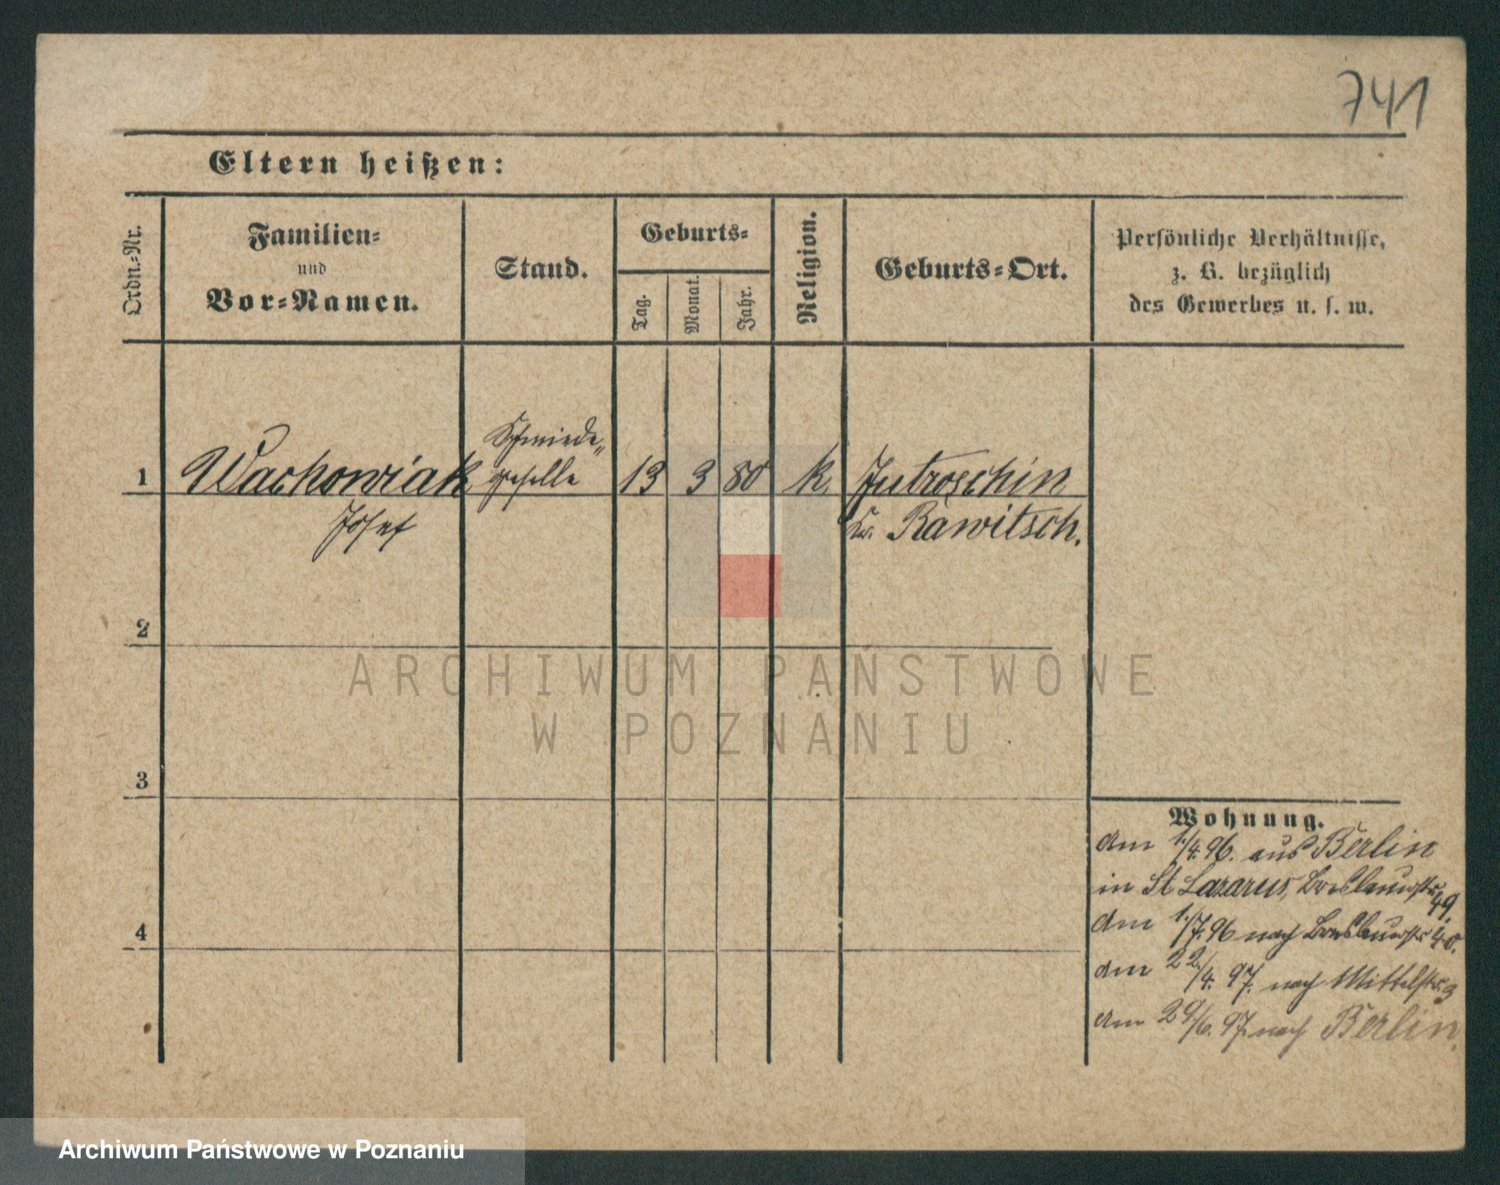 741
Eltern heißen:
Ordn.-Nr.
Familien-
und
Vor-Namen.
Stand.
Geburts-
Tag.
Monat.
Jahr.
Religion.
Geburts-Ort.
Persönliche Verhältnisse,
z. B. bezüglich
des Gewerbes u. s. w.
Schmiede-
1 Wachowiak geselle 13 3 80 k Jutroschin
Josef Kr. Rawitsch.
2
ARCHIWUM PAŃSTWOWE
W POZNANIU
3
Wohnung.
am 1./4. 96. aus Berlin
in St Lazarus, Breslauerstr. 49.
am 1./7. 96 nach Breslauerstr 40.
4
am 22./4. 97. nach Mittelstr. 3
am 29/6. 97. nach Berlin.
Archiwum Państwowe w Poznaniu